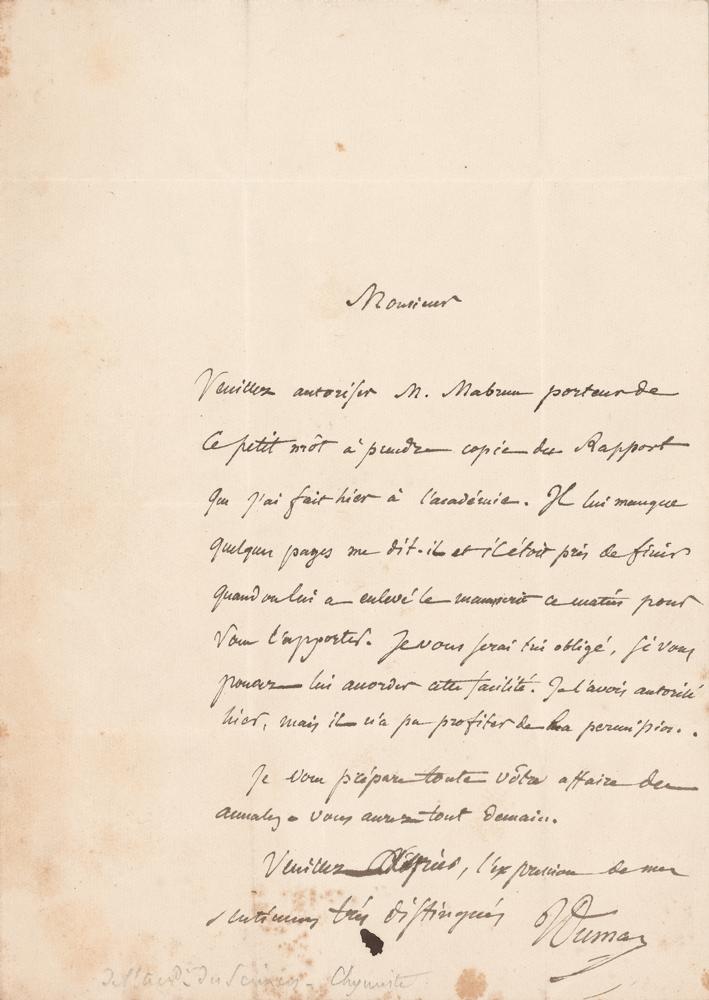 Monsieur
Veuillez autoriser M. Mabrun porteur de
ce petit môt à prendre copie du Rapport
que j'ai fait hier à l'académie. Il lui manque
quelques pages me dit-il et il étoit près de finir
quand on lui a enlevé le manuscrit ce matin pour
vous l'apporter. Je vous serai très obligé, si vous
pouvez lui accorder cette facilité. Je l'avois autorisé
hier, mais il n'a pu profiter de la permission.
Je vous prépare toute vôtre affaire des
annales. vous aurez tout demain.
Veuillez agréer, l'expression de mes
sentimens très distingués
Dumas
De l'Acad. des Sciences - Chymiste